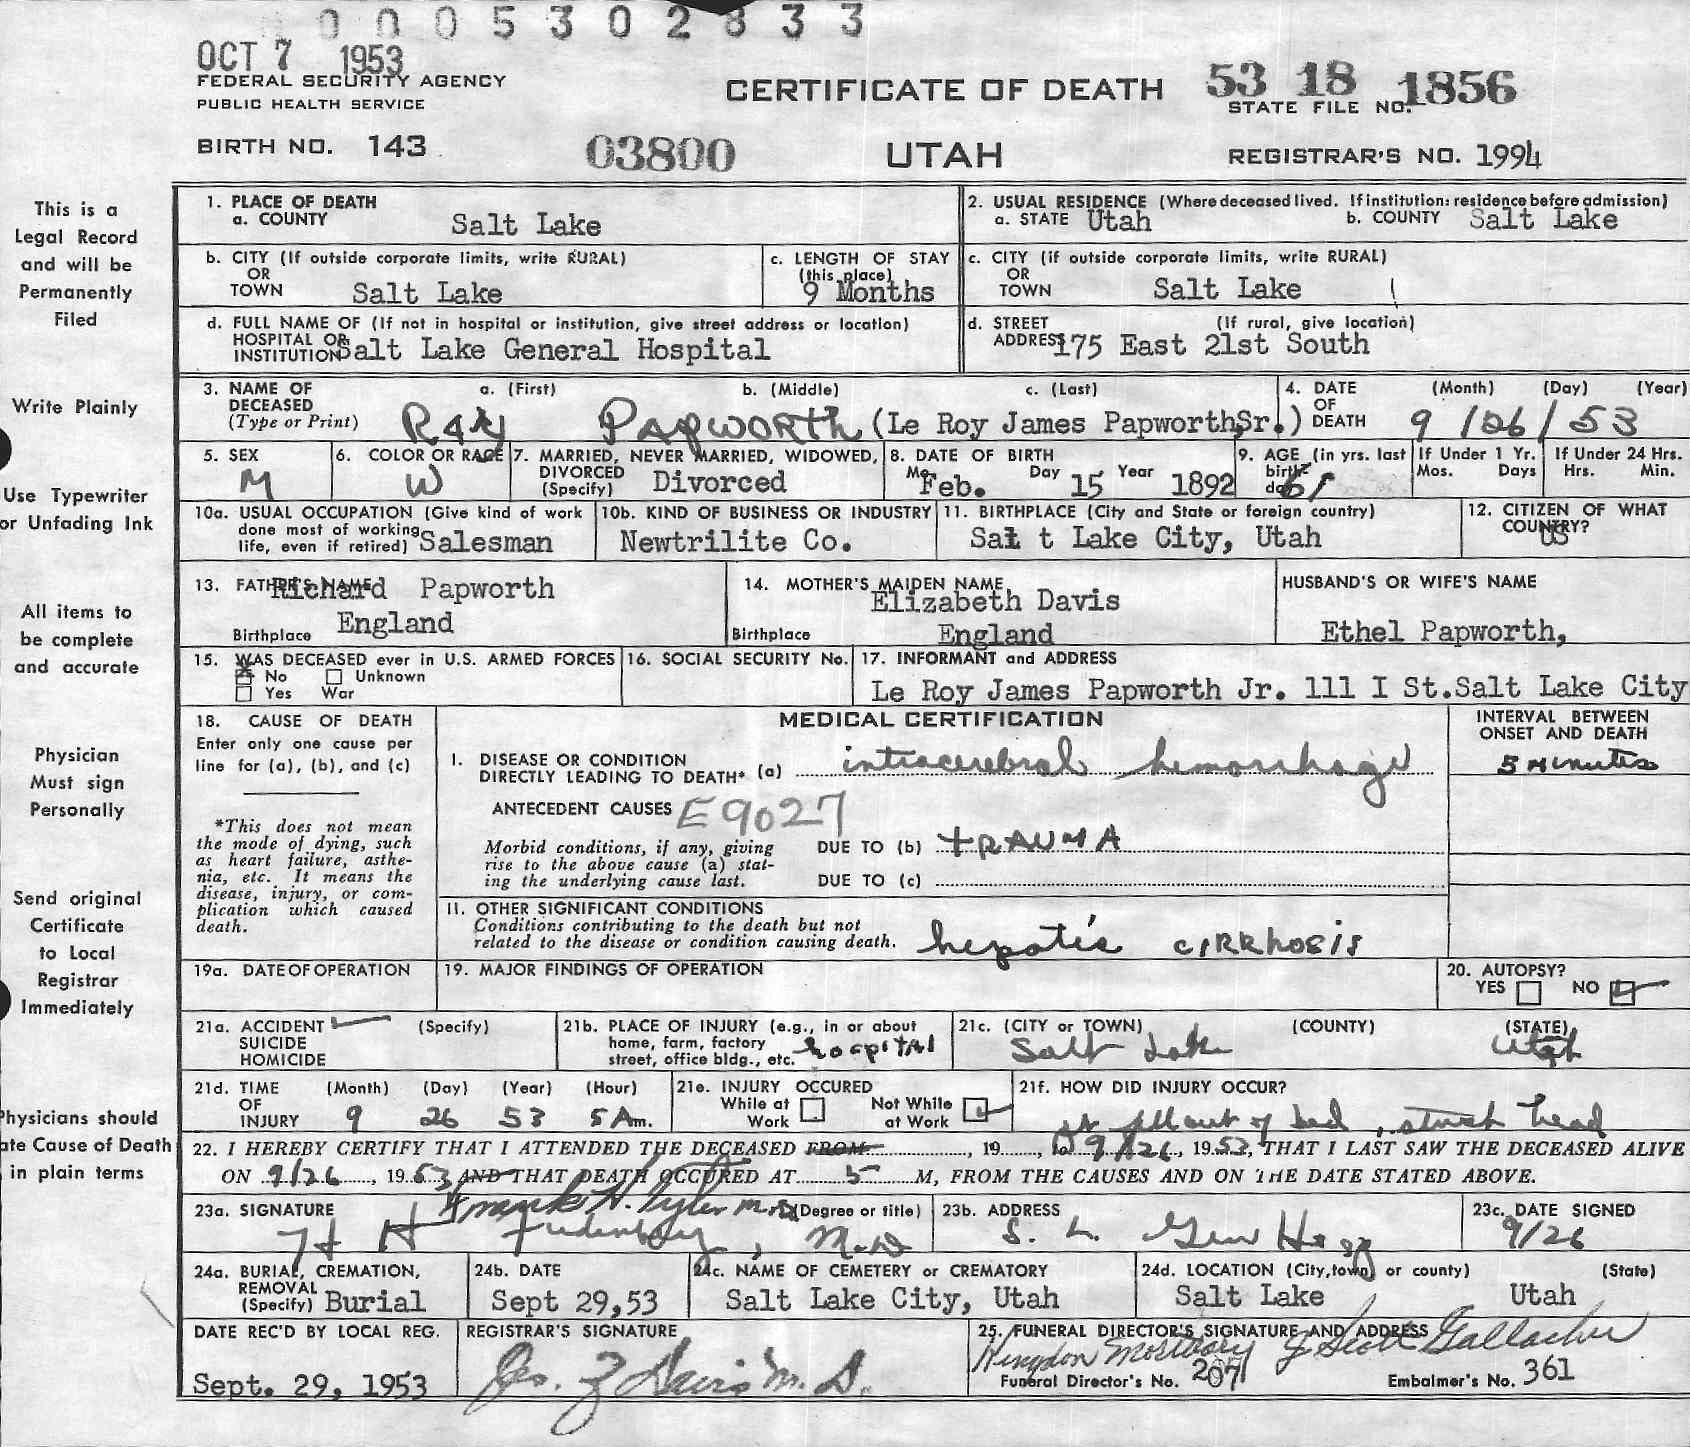 0 0 0 5 3 0 2 8 3 3
OCT 7 1953
FEDERAL SECURITY AGENCY
PUBLIC HEALTH SERVICE
CERTIFICATE OF DEATH
53 18 1856
STATE FILE NO.
BIRTH NO. 143
03800
UTAH
REGISTRAR'S NO. 1994
This is a
Legal Record
and will be
Permanently
Filed
Write Plainly
Use Typewriter
or Unfading Ink
All items to
be complete
and accurate
Physician
Must sign
Personally
Send original
Certificate
to Local
Registrar
Immediately
Physicians should
ate Cause of Death
in plain terms
1. PLACE OF DEATH
a. COUNTY Salt Lake
2. USUAL RESIDENCE (Where deceased lived. If institution: residence before admission)
a. STATE Utah b. COUNTY Salt Lake
b. CITY (If outside corporate limits, write RURAL)
OR
TOWN Salt Lake
c. LENGTH OF STAY
(this place)
9 Months
c. CITY (if outside corporate limits, write RURAL)
OR
TOWN Salt Lake
d. FULL NAME OF (If not in hospital or institution, give street address or location)
HOSPITAL OR
INSTITUTION Salt Lake General Hospital
d. STREET (If rural, give location)
ADDRESS 175 East 21st South
3. NAME OF DECEASED (Type or Print)
a. (First) b. (Middle) c. (Last)
Ray PAPWORTH (Le Roy James Papworth, Sr.)
4. DATE OF DEATH (Month) (Day) (Year)
9/26/53
5. SEX
M
6. COLOR OR RACE
W
7. MARRIED, NEVER MARRIED, WIDOWED,
DIVORCED
(Specify) Divorced
8. DATE OF BIRTH
Mo. Feb. Day 15 Year 1892
9. AGE (in yrs. last
birthday) 61
If Under 1 Yr.
Mos. Days
If Under 24 Hrs.
Hrs. Min.
10a. USUAL OCCUPATION (Give kind of work
done most of working
life, even if retired) Salesman
10b. KIND OF BUSINESS OR INDUSTRY
Newtrilite Co.
11. BIRTHPLACE (City and State or foreign country)
Sai t Lake City, Utah
12. CITIZEN OF WHAT
COUNTRY?
US
13. FATHER'S NAME
Richard Papworth
Birthplace England
14. MOTHER'S MAIDEN NAME
Elizabeth Davis
Birthplace England
HUSBAND'S OR WIFE'S NAME
Ethel Papworth,
15. WAS DECEASED ever in U.S. ARMED FORCES
No Unknown
Yes War
16. SOCIAL SECURITY No.
17. INFORMANT and ADDRESS
Le Roy James Papworth Jr. 111 I St.Salt Lake City
18. CAUSE OF DEATH
Enter only one cause per
line for (a), (b), and (c)
*This does not mean
the mode of dying, such
as heart failure, asthe-
nia, etc. It means the
disease, injury, or com-
plication which caused
death.
MEDICAL CERTIFICATION
INTERVAL BETWEEN
ONSET AND DEATH
I. DISEASE OR CONDITION
DIRECTLY LEADING TO DEATH* (a) intracerebral hemorrhage
5 Minutes
ANTECEDENT CAUSES E9027
Morbid conditions, if any, giving
rise to the above cause (a) stat-
ing the underlying cause last.
DUE TO (b) TRAUMA
DUE TO (c)
II. OTHER SIGNIFICANT CONDITIONS
Conditions contributing to the death but not
related to the disease or condition causing death.
hepatic cirrhosis
19a. DATE OF OPERATION
19. MAJOR FINDINGS OF OPERATION
20. AUTOPSY?
YES NO
21a. ACCIDENT (Specify)
SUICIDE
HOMICIDE
21b. PLACE OF INJURY (e.g., in or about
home, farm, factory
street, office bldg., etc. hospital
21c. (CITY or TOWN) (COUNTY) (STATE)
Salt Lake Utah
21d. TIME OF INJURY (Month) (Day) (Year) (Hour)
9 26 53 5 Am.
21e. INJURY OCCURED
While at Work Not While at Work
21f. HOW DID INJURY OCCUR?
pt fell out of bed, struck head
22. I HEREBY CERTIFY THAT I ATTENDED THE DECEASED FROM , 19 , to 9/26, 1953, THAT I LAST SAW THE DECEASED ALIVE
ON 9/26, 1953 AND THAT DEATH OCCURED AT 5 M, FROM THE CAUSES AND ON THE DATE STATED ABOVE.
23a. SIGNATURE (Degree or title)
Frank H. Tyler M.D.
M.D
23b. ADDRESS
S. L. Gen Hosp
23c. DATE SIGNED
9/26
24a. BURIAL, CREMATION,
REMOVAL
(Specify) Burial
24b. DATE
Sept 29,53
24c. NAME OF CEMETERY or CREMATORY
Salt Lake City, Utah
24d. LOCATION (City, town, or county) (State)
Salt Lake Utah
DATE REC'D BY LOCAL REG.
Sept. 29, 1953
REGISTRAR'S SIGNATURE
Geo. Z Davis M. D.
25. FUNERAL DIRECTOR'S SIGNATURE AND ADDRESS
Mortuary J Scott Gallacher
Funeral Director's No. 207 Embalmer's No. 361